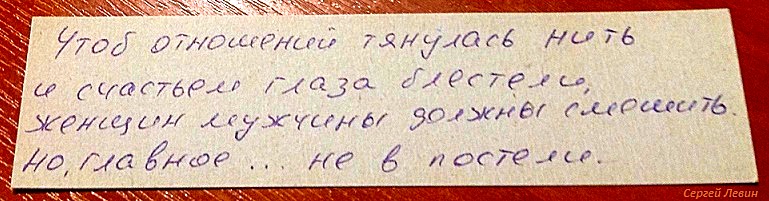 Чтоб отношений тянулась нить
и счастьем глаза блестели,
женщин мужчины должны смешить.
Но, главное... не в постели.
Сергей Левин